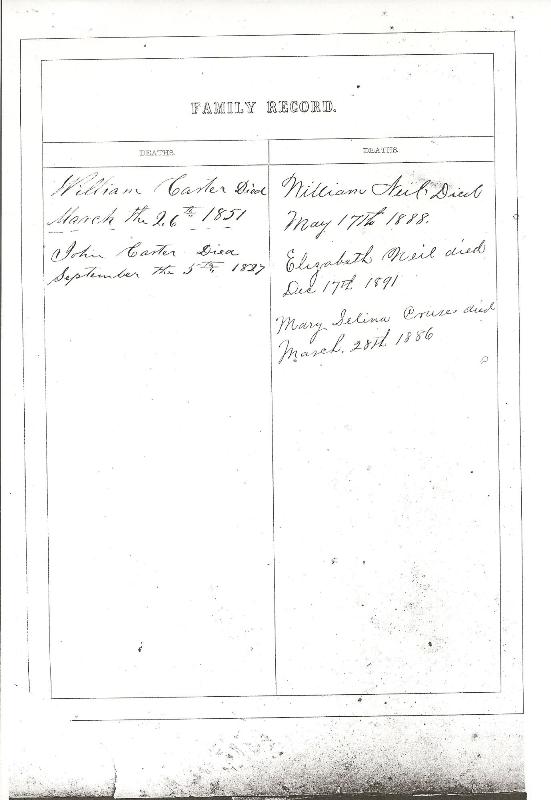 FAMILY RECORD.
DEATHS.
William Carter Died
March the 26th 1851
John Carter Died
September the 5th 1827
DEATHS.
William Neil Died
May 17th 1888.
Elizabeth Neil died
Dec 17th 1891
Mary Selina Cruse died
March. 28th 1886